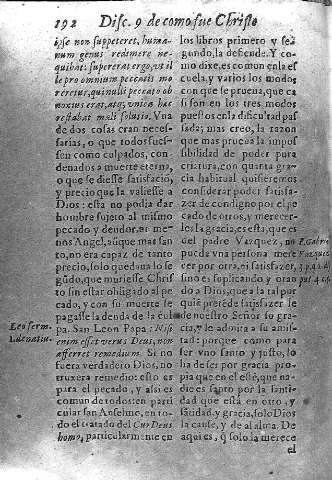 192 Disc. 9 de como fue Christo
ipse non suppeteret, huma-
num genus redimere ne-
quibat: supererat ergo, vt il
le pro omnium peccatis mo
reretur, qui nulli peccato ob
noxius erat, atq; vnica hæc
restabat mali solutio. Vna
de dos cosas eran neces-
sarias, o que todos fues-
sen como culpados, con-
denados a muerte eterna,
o que se diesse satisfació,
y precio que la valiesse a
Dios: esta no podia dar
hombre sujeto al mismo
pecado y deudor, ni me-
nos Angel, aũque mas san
to, no era capaz de tanto
precio, solo quedaua lo se
gũdo, que muriesse Chris
to sin estar obligado al pe
cado, y con su muerte se
pagasse la deuda de la cul
pa. San Leon Papa: Nisi
enim esset verus Deus, non
afferret remedium. Si no
fuera verdadero Dios, no
truxera remedio: esto es
para el pecado, y assi es
comun de todos: en parti
cular san Anselmo, en to-
do el tratado del Cur Deus
homo, particularmente en
Leo serm.
los libros primero y se-
gundo, la defiende. Y co-
mo dixe, es comun en la es
cuela, y varios los modos
con que se prueua, que ca
si son en los tres modos
puestos en la dificultad pas
sada; mas creo, la razon
que mas prueua la impos
sibilidad de poder pura
criatura, con quanta gra-
cia habitual quisieremos
considerar poder satisfa-
zer de condigno por el pe
cado de otros, y merecer-
les la gracia, es esta, que es
del padre Vazquez, no
pueda vna persona mere
cer por otra, ni satisfazer,
sino es suplicando y oran
do a Dios, que a la tal por
quiē prete̅de satisfazer le
de nuestro Señor su gra-
cia, y le admita a su amis-
tad: porque como para
ser vno santo y justo, lo
ha de ser por gracia pro-
pia que en el esté, que na-
die es santo por la santi-
dad que está en otro, y
sātidad, y gracia, solo Dios
la cause, y de al alma. De
aqui es, q̃ solo la merece
el
P. Gabriel
Vazquez